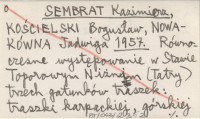 SEMBRAT Kazimierz,
KOŚCIELSKI Bogusław, NOWA-
KÓWNA Jadwiga 1957. Równo-
czesne występowanie w Stawie
Toporowym Niżnym (Tatry)
trzech gatunków traszek:
traszki karpackiej, górskiej